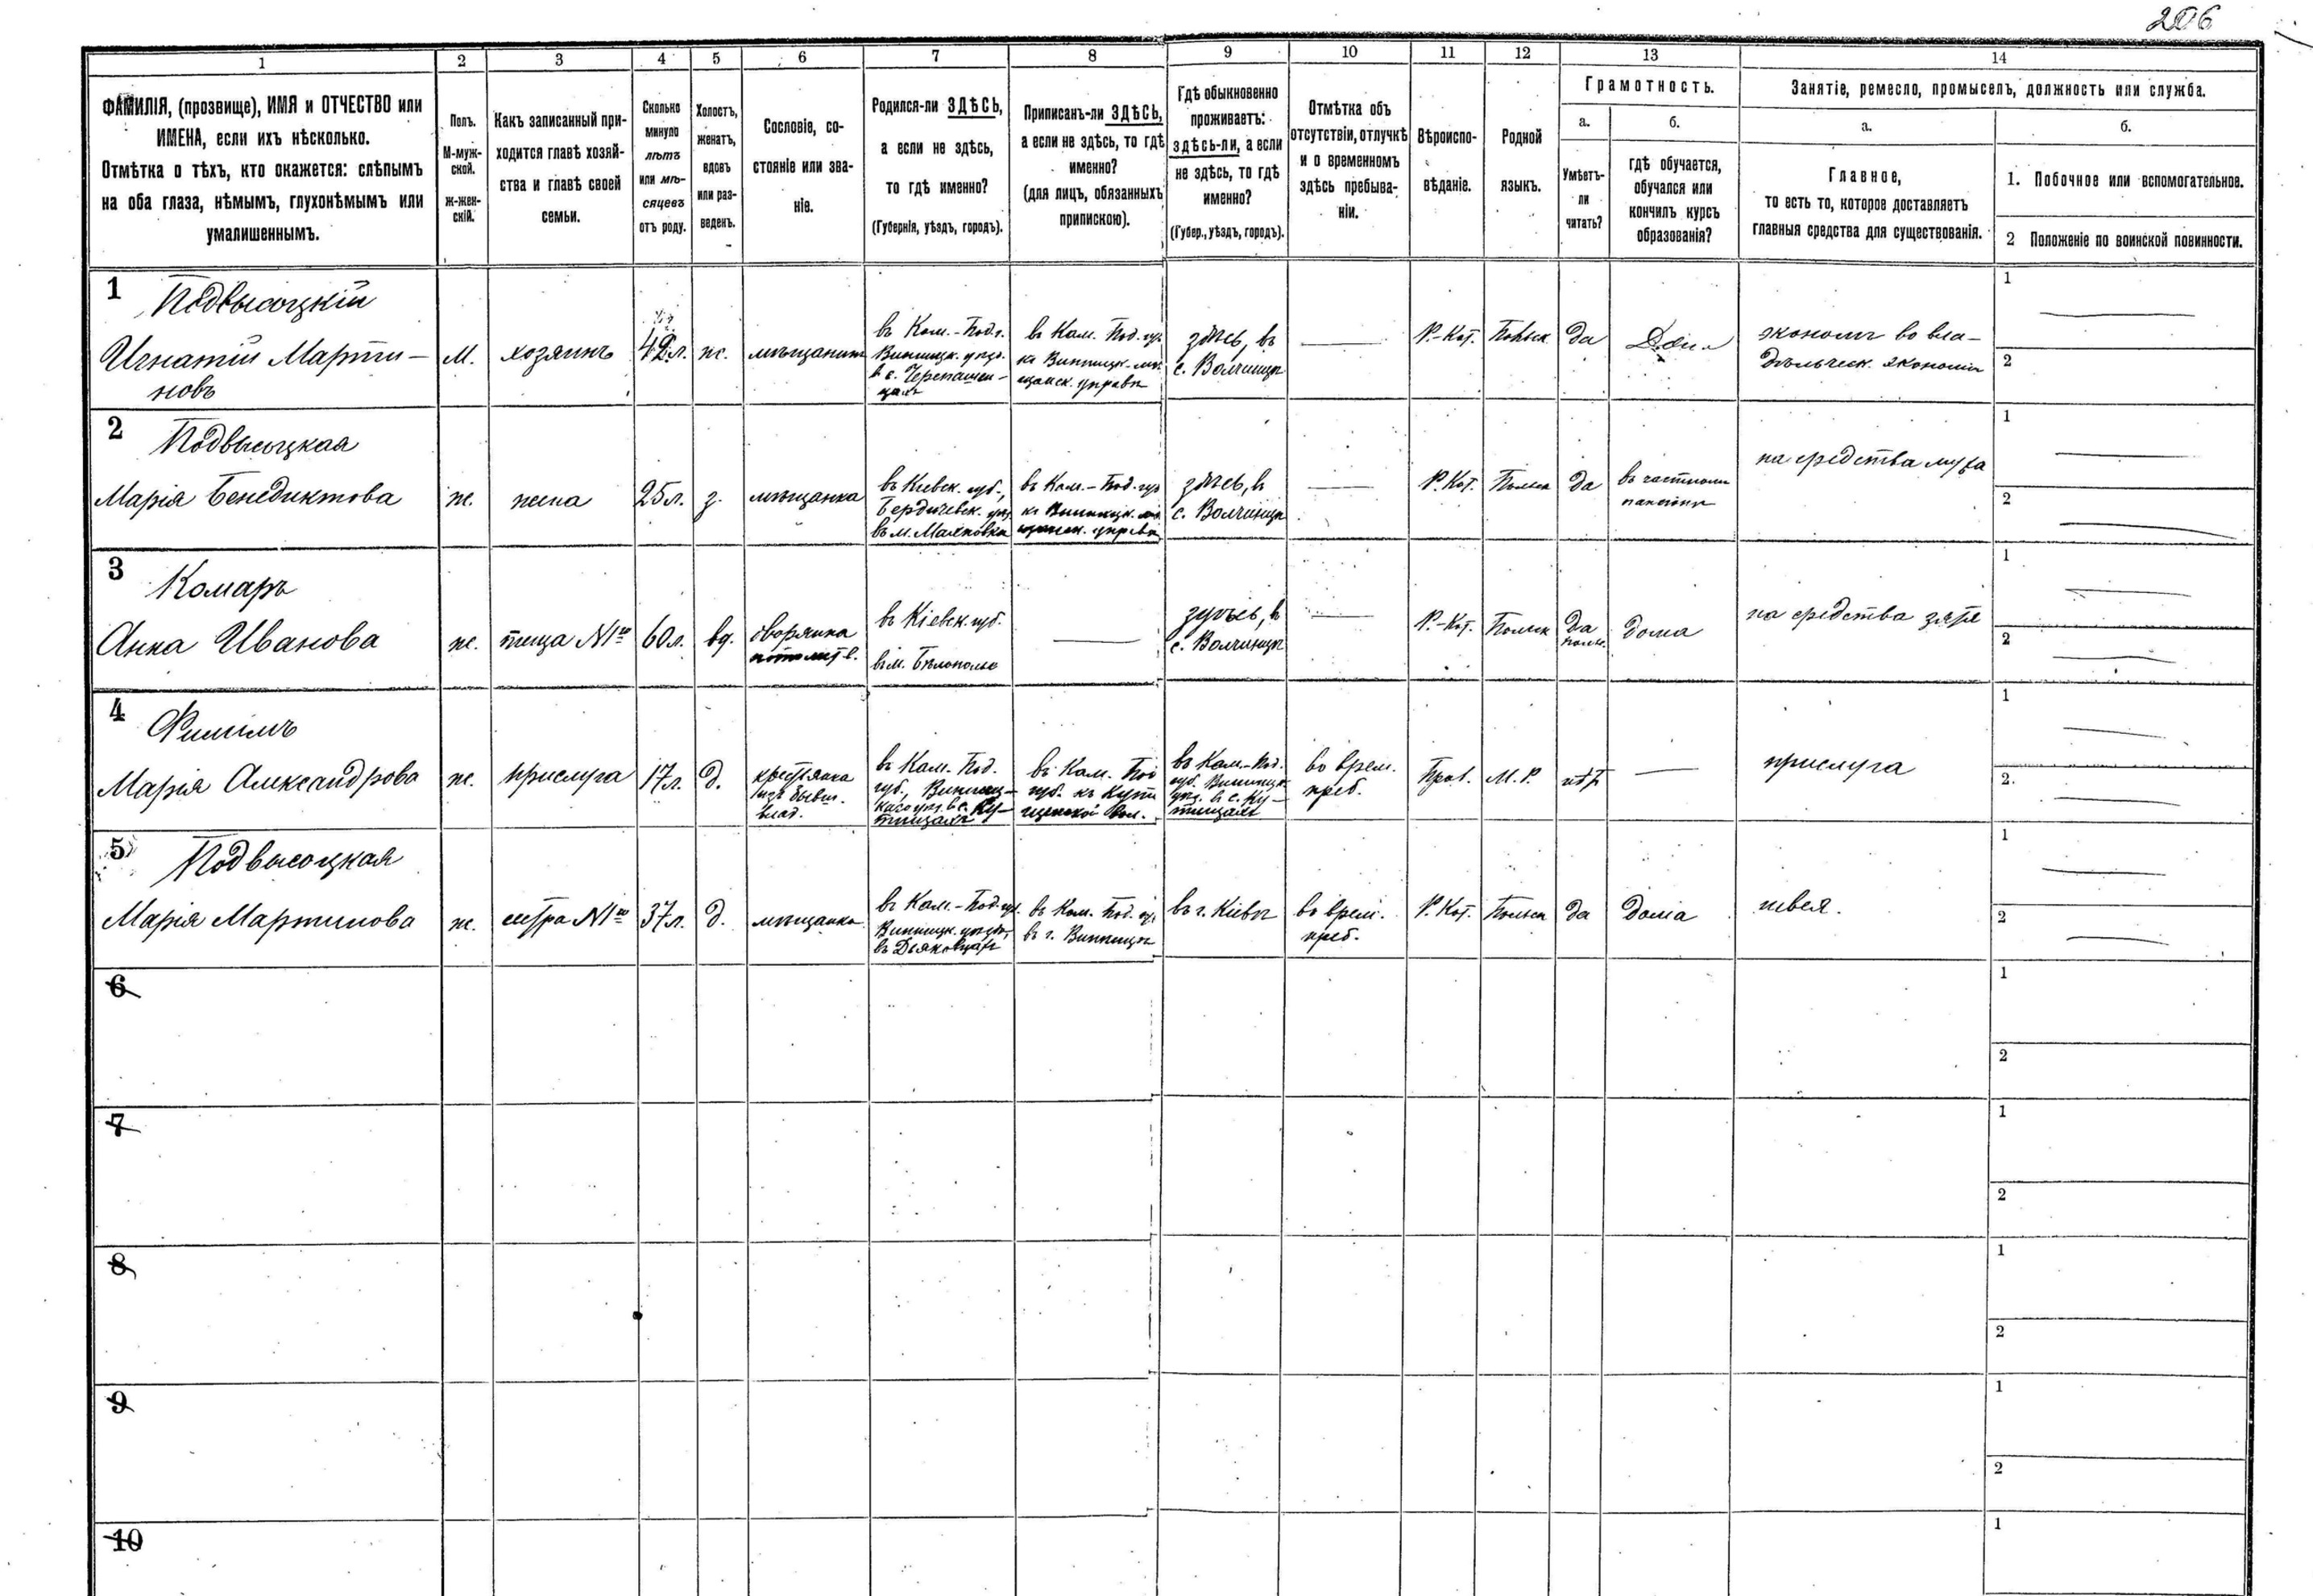 206
1 2 3 4 5 6 7 8 9 10 11 12 13 14
ФАМИЛІЯ, (прозвище), ИМЯ и ОТЧЕСТВО или
ИМЕНА, если ихъ нѣсколько.
Отмѣтка о тѣхъ, кто окажется: слѣпымъ
на оба глаза, нѣмымъ, глухонѣмымъ или
умалишеннымъ.
Полъ.
М-муж-
ской.
Ж-жен-
скій.
Какъ записанный при-
ходится главѣ хозяй-
ства и главѣ своей
семьи.
Сколько
минуло
лѣтъ
или мѣ-
сяцевъ
отъ роду.
Холостъ,
женатъ,
вдовъ
или раз-
веденъ.
Сословіе, со-
стояніе или зва-
ніе.
Родился-ли ЗДѢСЬ,
а если не здѣсь,
то гдѣ именно?
(Губернія, уѣздъ, городъ).
Приписанъ-ли ЗДѢСЬ,
а если не здѣсь, то гдѣ
именно?
(для лицъ, обязанныхъ
припискою).
Гдѣ обыкновенно
проживаетъ:
здѣсь-ли, а если
не здѣсь, то гдѣ
именно?
(Губер., уѣздъ, городъ).
Отмѣтка объ
отсутствіи, отлучкѣ
и о временномъ
здѣсь пребыва-
ніи.
Вѣроиспо-
вѣданіе.
Родной
языкъ.
Грамотность.
а.
Умѣетъ-
ли
читать?
б.
гдѣ обучается,
обучался или
кончилъ курсъ
образованія?
Занятіе, ремесло, промыселъ, должность или служба.
а.
Главное,
то есть то, которое доставляетъ
главныя средства для существованія.
б.
1. Побочное или вспомогательное.
2 Положеніе по воинской повинности.
1
Подвысоцкій
Игнатій Марти-
новъ
М.
хозяинъ
42 л.
ж.
мѣщанинъ
въ Кам.-Под. г.
Винницк. уѣзд.
в с. Черепашин-
цахъ
въ Кам. Под. гу.
къ Винницк. мѣ-
щанск. управѣ
здѣсь, въ
с. Волчинцѣ
Р.-Кат.
Польск
да
Дома
экономъ во вла-
дѣльческ. экономіи
1
2
2
Подвысоцкая
Марія Бенедиктова
ж.
жена
25 л.
з.
мѣщанка
въ Кіевск. губ.,
Бердичевск. уѣз.
въ м. Махновкѣ
въ Кам.-Под. гу
къ Винницк. мѣ
щанск. управѣ
здѣсь, в
с. Волчинцѣ
Р. Кат.
Польск
да
въ частномъ
пансіонѣ
на средства мужа
1
2
3
Комаръ
Анна Иванова
ж.
теща №1го
60 л.
вд.
дворянка
потомст.
въ Кіевск губ.
въ м. Бѣлополье
здѣсь, в
с. Волчинцѣ
Р.-Кат.
Польск
да
польс.
дома
на средства зятя
1
2
4
Марія Александрова
ж.
прислуга
17 л.
д.
крестьянка
изъ бывш.
влад.
въ Кам. Под.
губ., Винниц-
каго уѣз. в с. Ку-
тищахъ
въ Кам. Под
губ. къ Кути
щенской вол.
въ Кам.-Под.
губ. Винницк.
уѣз. в с. Ку-
тищахъ
во врем.
преб.
Прав.
М. Р.
нѣт
прислуга
1
2.
5
Подвысоцкая
Марія Мартинова
ж.
сестра №1го
37 л.
д.
мѣщанка
въ Кам.-Под. гу.
Винницк. уѣзд.,
въ Дьяковцахъ
въ Кам. Под. гу.
въ г. Винницѣ
въ г. Кіевѣ
во врем.
преб.
Р. Кат.
Польск
да
дома
швея.
1
2
6
1
2
7
1
2
8
1
2
9
1
2
10
1